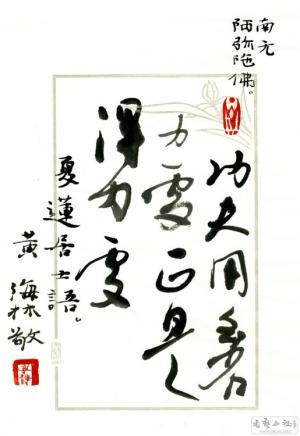 南无
阿弥陀佛。
功夫用着
力處正是
得力處
夏蓮居士語。
黃海林敬